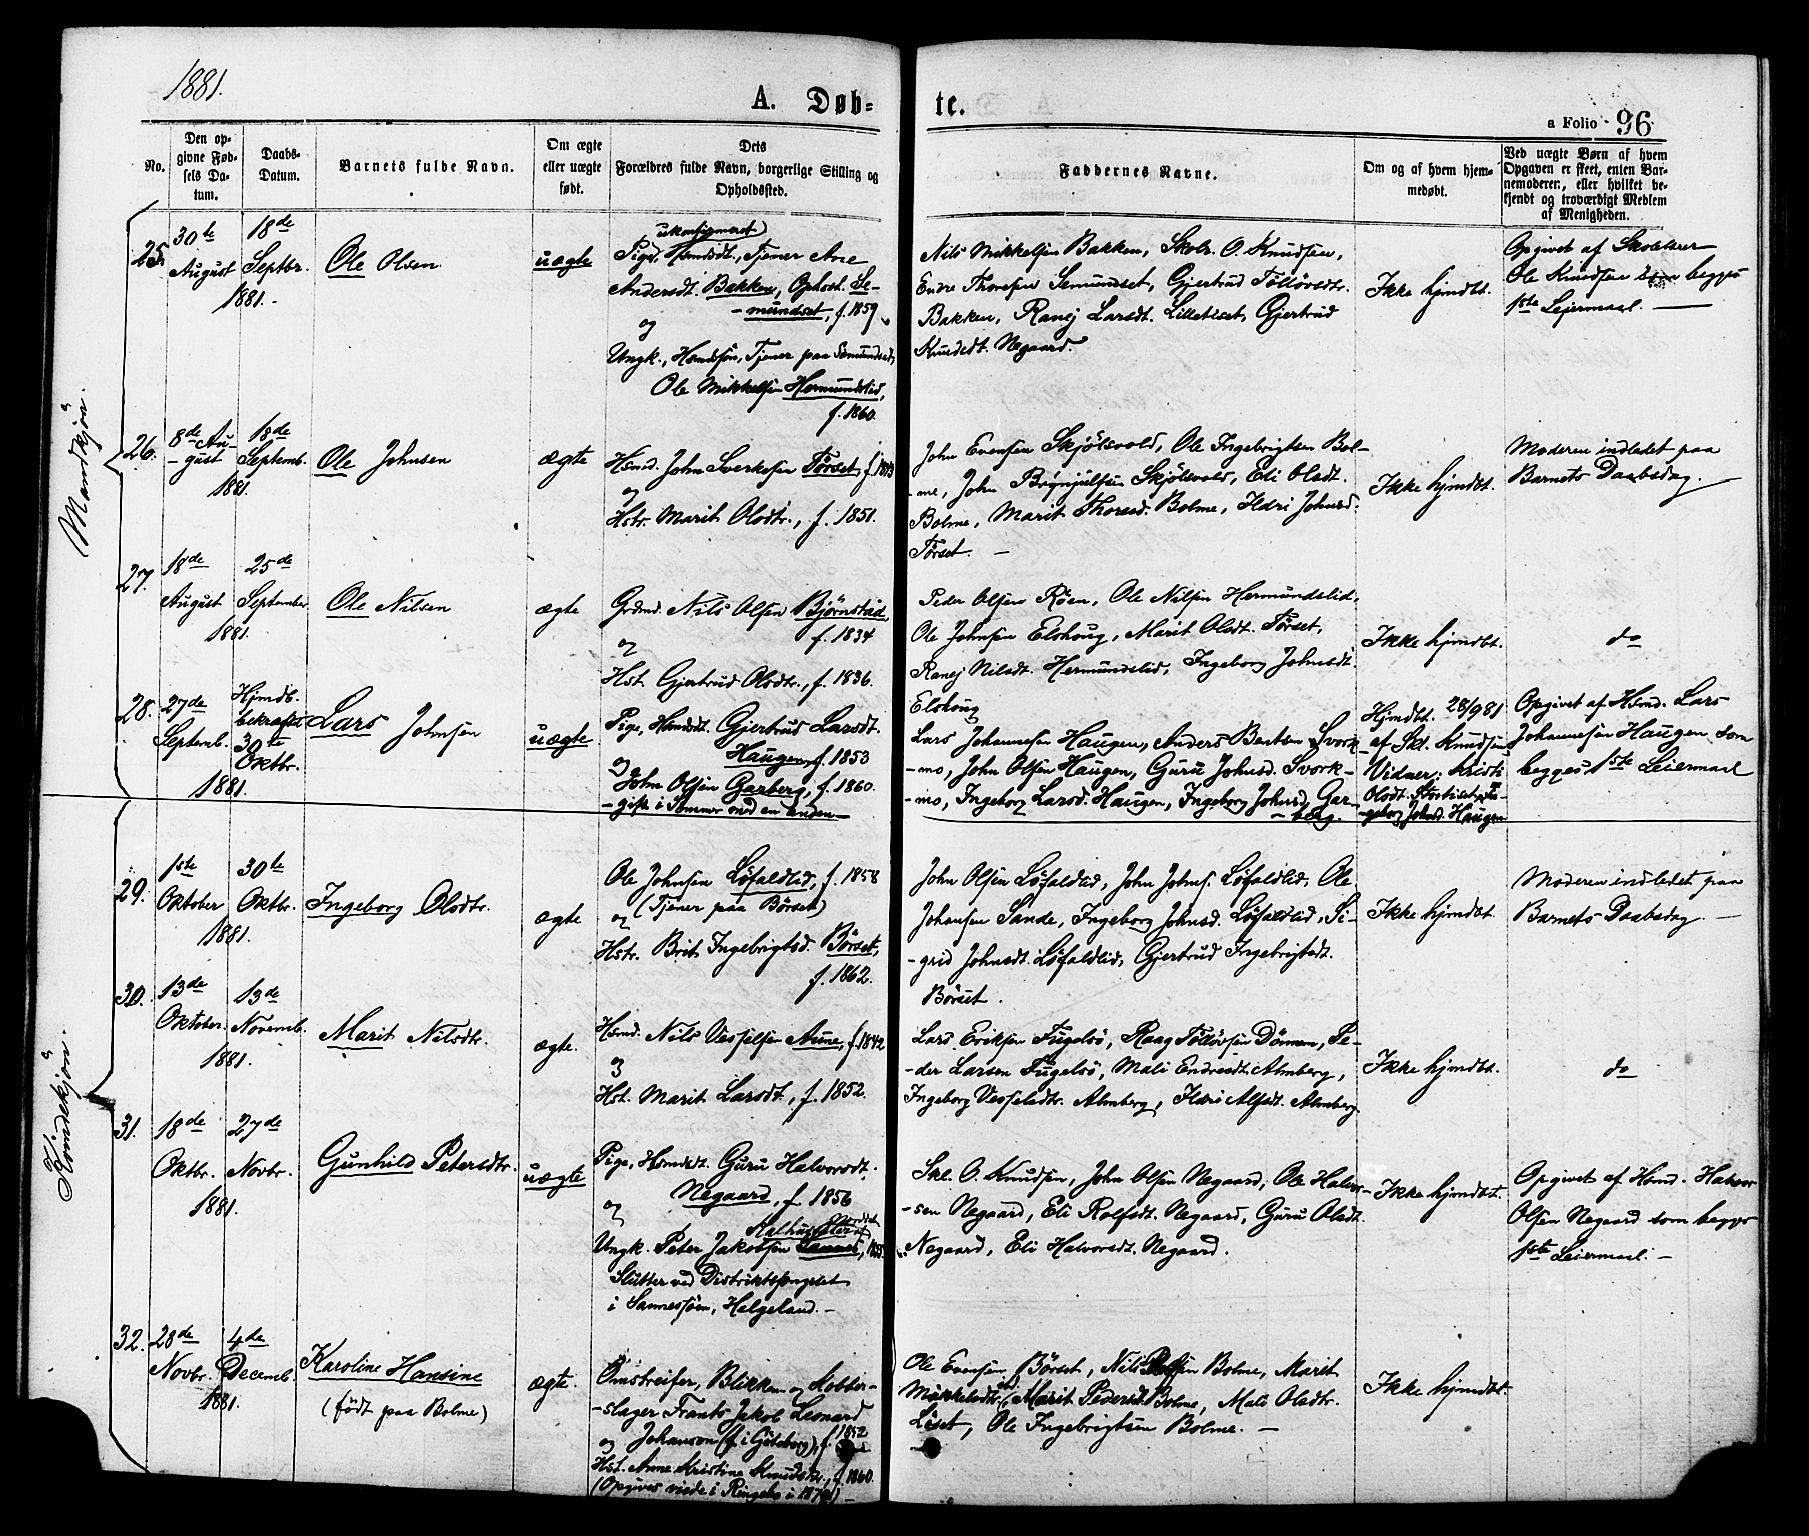 1881.
A. Døb-
te.
a Folio 96
No.
Den op-
givne Fød-
sels Da-
tum.
Daabs-
Datum.
Barnets fulde Navn.
Om ægte
eller uægte
født.
Dets
Forældres fulde Navn, borgerlige Stilling og
Opholdssted.
Faddernes Navne.
Om og af hvem hjem-
medøbt.
Ved uægte Børn af hvem
Opgaven er skeet, enten Bar-
nemoderen, eller hvilket be-
kjendt og troværdigt Medlem
af Menigheden.
Mandkjön.
25.
30te
August
18de
Septbr.
1881.
Ole Olsen
uægte
ukonfirmeret)
Pige, Hsmdsdt., Tjener Ane
Andersdt. Bakken, Opholst. Se-
-mundset, f. 1859
og
Ungk., Hsmdssön, Tjener paa Semundset,
Ole Mikkelsen Hermundslid,
f. 1860.
Nils Mikkelsen Bakken, Skolr. O. Knudsen,
Endre Thoresen Semundset, Gjertrud Töllövsdtr.
Bakken, Ranej Larsdt. Lilletiset, Gjertrud
Knudsdt. Negaard.
Ikke hjmdbt.
Opgivet af Skolelærer
Ole Knudsen som begges
1ste Lejermaal. —
26.
8de Au-
-gust
18de
Septemb.
1881.
Ole Johnsen
ægte
Hsmd. John Sverkesen Törset, f. 1853
og
Hstr. Marit Olsdtr., f. 1851.
John Evensen Skjölsvold, Ole Ingebrigtsen Bol-
-me, John Brynjulfsen Skjölsvold, Eli Olsdt.
Bolme, Marit Thoresd. Bolme, Ildri Johnsd.
Törset. —
Ikke hjmdbt.
Moderen indledet paa
Barnets Daabsdag.
27.
18de
August
25de
September
1881.
Ole Nilsen
ægte
Grdmd. Nils Olsen Björnstad,
f. 1834
og
Hst. Gjertrud Olsdtr., f. 1836.
Peder Olsen Röen, Ole Nilsen Hermundslid,
Ole Johnsen Elshoug, Marit Olsdt. Törset,
Ranej Nilsdt. Hermundslid, Ingeborg Johnsdt.
Elshoug
Ikke hjmdbt.
do
28.
27de
Septemb.
Hjmdb.
bekræftet
30te
Oktbr.
1881.
Lars Johnsen
uægte
Pige, Hsmdsdt. Gjertrud Larsdt.
Haugen, f. 1853
og
John Olsen Garberg, f. 1860.
-gift i Sommer med en anden—
Lars Johannesen Haugen, Anders Bentsen Svork-
-mo, John Olsen Haugen, Guru Johnsd. Svork-
-mo, Ingeborg Larsd. Haugen, Ingeborg Johnsd. Gar-
-berg.
Hjmdbt. 28/9 81
af Skl. Knudsen
Vidner: Kristi
Olsdt. Stortiset, In-
-geborg Johnsd. Haugen
Opgivet af Hsmd. Lars
Johannesen Haugen som
begges 1ste Leiermaal
Kvindekjön.
29.
1ste
Oktober
30te
Oktbr.
1881.
Ingeborg Olsdtr.
ægte
Ole Johnsen Löfaldlid, f. 1858
og (Tjener paa Börset)
Hstr. Brit Ingebrigtsd. Börset,
f. 1862.
John Olsen Löfaldlid, John Johns. Löfaldlid, Ole
Johansen Sande, Ingeborg Johnsd. Löfaldlid, Si-
-grid Johnsdt. Löfaldlid, Gjertrud Ingebrigtsdt.
Börset.
Ikke hjmdbt
Moderen indledet paa
Barnets Daabsdag. —
30.
13de
Oktober
13de
Novemb.
1881.
Marit Nilsdtr.
ægte.
Hsmd. Nils Vesselsen Aune, f. 1842
og
Hst. Marit Larsdt, f. 1852.
Lars Eriksen Fugelsö, Raag Töllövsen Dönnem, Pe-
-der Larsen Fugelsö, Mali Endresdt. Almberg,
Ingeborg Vesselsdtr. Almberg, Ildri Alfsdt. Almberg.
Ikke hjmdbt.
do
31.
18de
Oktbr.
27de
Novbr.
1881.
Gunhild Petersdtr.
uægte
Pige, Hsmdsdt. Guru Halvorsdt.
Negaard, f. 1856
og
Ungk. Peter Jakobsen Sannes, 1855
Slutter ved Distriktsfængslet
i Sannessjöen, Helgeland. —
Skl. O. Knudsen, John Olsen Negaard, Ole Halvor-
-sen Negaard, Eli Rolfsdt. Negaard, Guru Olsdt.
Negaard, Eli Halvorsdt. Negaard.
Ikke hjmdbt.
Opgivet af Hsmd. Halvor
Olsen Negaard som begges
1ste Leiermaal. —
32.
28de
Novbr.
4de
Decemb.
1881.
Karoline Hansine
(födt paa Bolme)
ægte.
Omstreifer, Blikken og Kobber-
-slager Frants Jakob Leonard
og Johanson (f. i Göteborg), f. 1852
Hst. Anne Kristine Knudsdtr., f. 1860.
(Opgives viede i Ringebo i 1879)—
Ole Evensen Börset, Nils Olsen Bolme, Marit
Mikkelsdtr. Marit Pedersd. Bolme, Mali Olsdtr.
Löset, Ole Ingebrigtsen Bolme. —
Ikke hjmdbt.